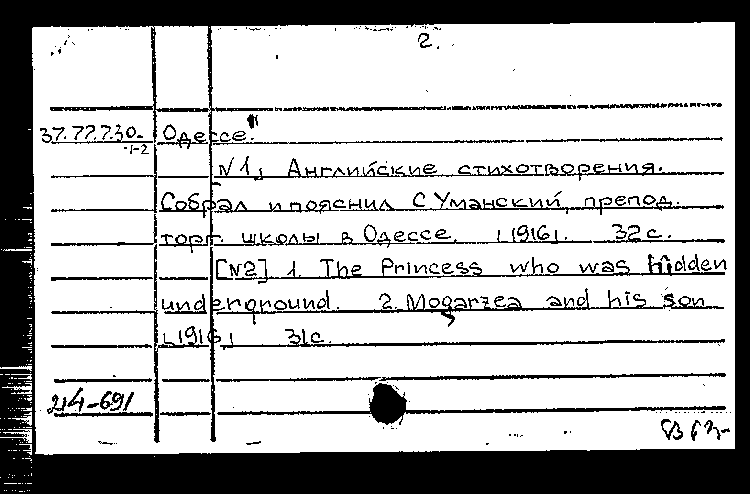 2.
37.77.7.30- Одессе."
-1-2
N1, Английские стихотворения.
Собрал и пояснил С Уманский, препод.
торг. школы в Одессе. [1916]. 32 с.
[N2] 1. The Princess who was hidden
underground. 2. Mogarzea and his son
[1916] 31 с.
214-691